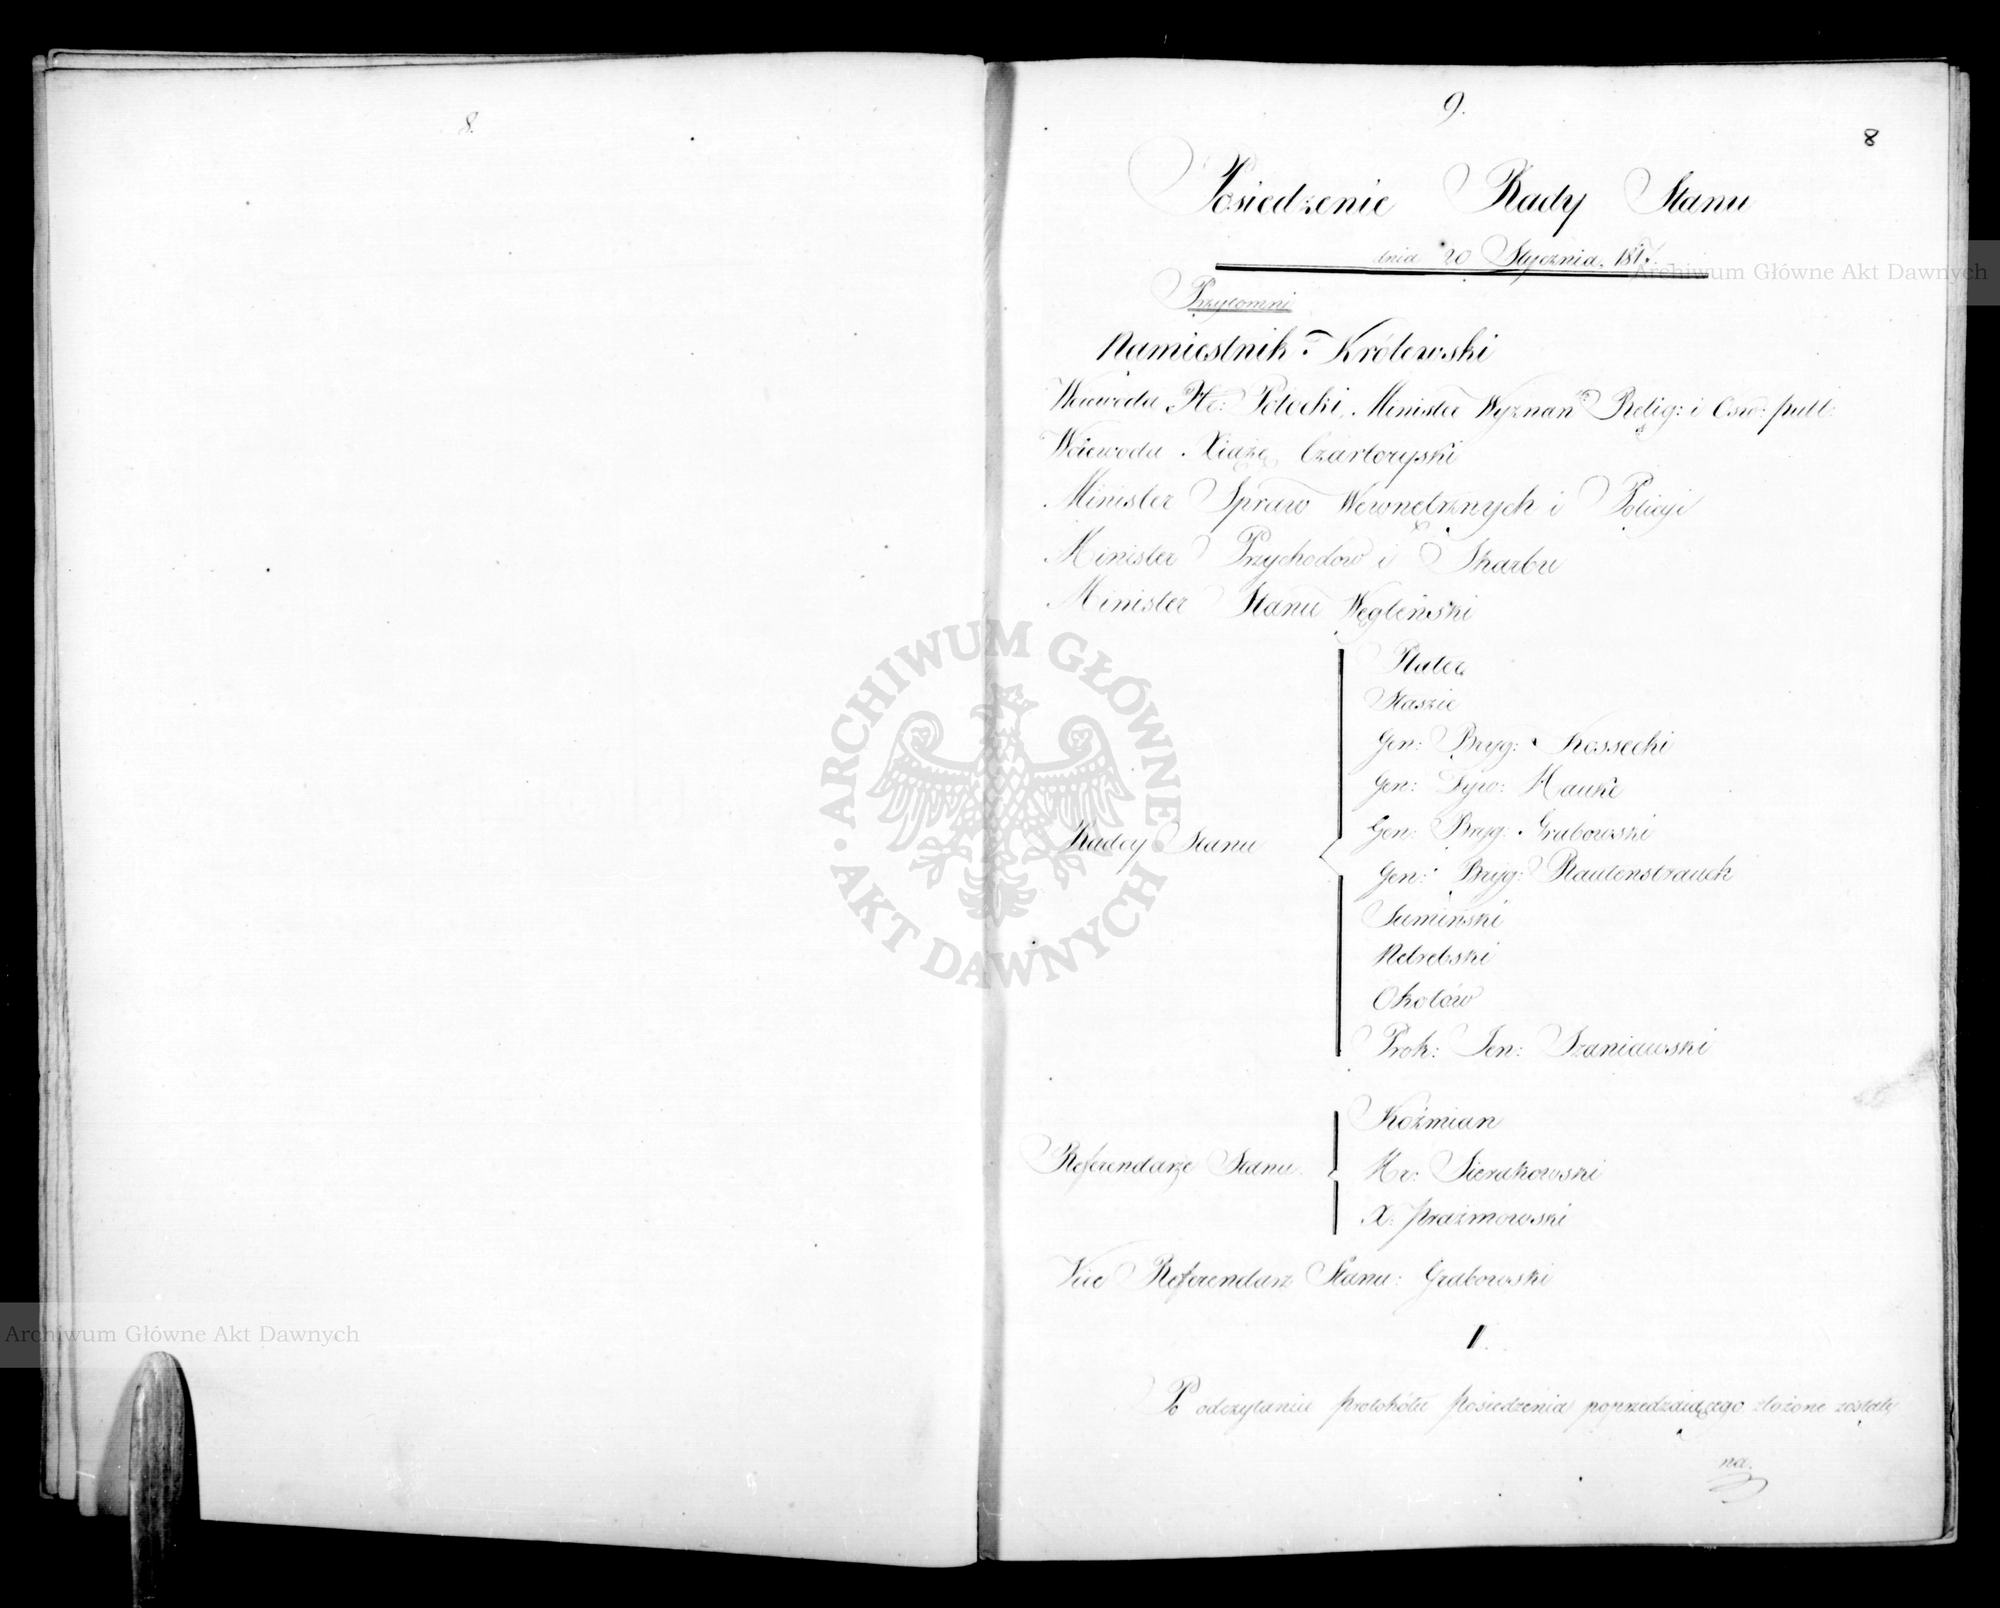 8.
9.
8
Posiedzenie Rady Stanu
dnia 20 Stycznia 1817.
Przytomni
Namiestnik Królewski
Woiewoda Hr: Potocki, Minister Wyznań Relig: i Ośw: publ:
Woiewoda Xiążę Czartoryski
Minister Spraw Wewnętrznych i Policyi
Minister Przychodów i Skarbu
Minister Stanu Węgleński
Radcy Stanu
Plater
Staszic
Gen: Bryg: Kossecki
Gen: Dyw: Hauke
Gen: Bryg: Grabowski
Gen: Bryg: Rautenstrauch
Sumiński
Nebrebski
Okołów
Prok: Jen: Szaniawski
Referendarze Stanu
Koźmian
Hr: Sierakowski
X: Prażmowski
Vice Referendarz Stanu: Grabowski
I.
Po odczytaniu protokółu posiedzenia poprzedzaiącego złożone zostały
na.
Archiwum Główne Akt Dawnych
ARCHIWUM GŁÓWNE AKT DAWNYCH
Archiwum Główne Akt Dawnych